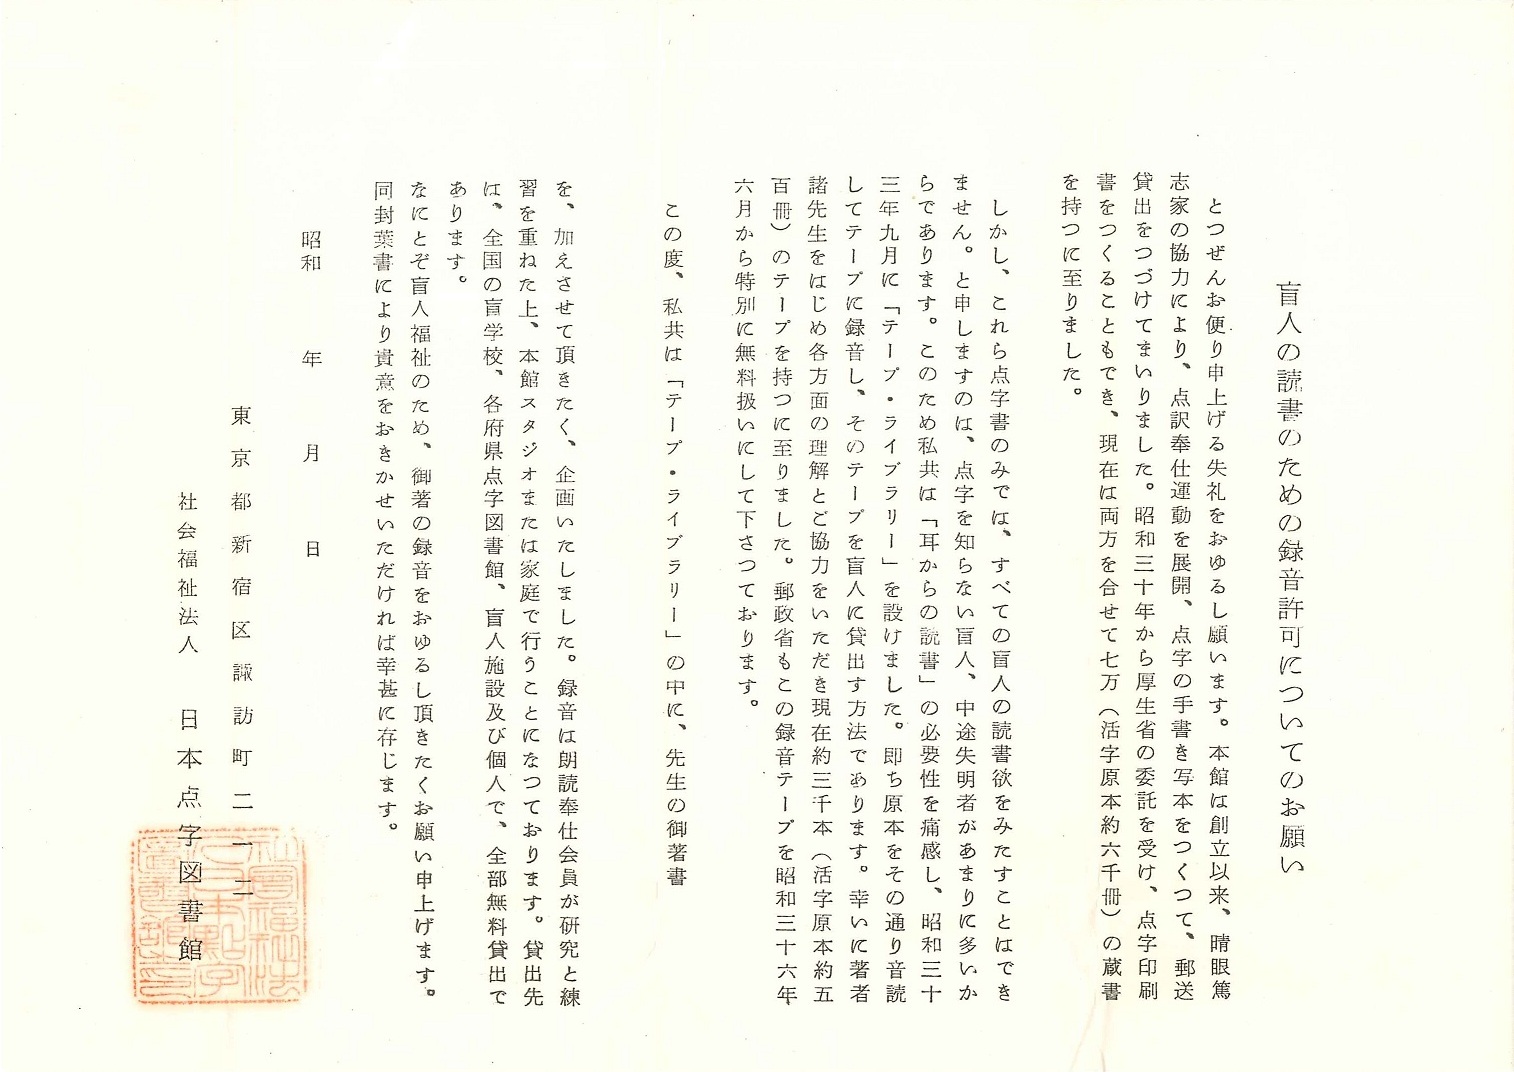 盲人の読書のための録音許可についてのお願い
とつぜんお便り申上げる失礼をおゆるし願います。本館は創立以来、晴眼篤
志家の協力により、点訳奉仕運動を展開、点字の手書き写本をつくつて、郵送
貸出をつづけてまいりました。昭和三十年から厚生省の委託を受け、点字印刷
書をつくることもでき、現在は両方を合せて七万（活字原本約六千冊）の蔵書
を持つに至りました。
しかし、これら点字書のみでは、すべての盲人の読書欲をみたすことはでき
ません。と申しますのは、点字を知らない盲人、中途失明者があまりに多いか
らであります。このため私共は「耳からの読書」の必要性を痛感し、昭和三十
三年九月に「テープ・ライブラリー」を設けました。即ち原本をその通り音読
してテープに録音し、そのテープを盲人に貸出す方法であります。幸いに著者
諸先生をはじめ各方面の理解とご協力をいただき現在約三千本（活字原本約五
百冊）のテープを持つに至りました。郵政省もこの録音テープを昭和三十六年
六月から特別に無料扱いにして下さつております。
この度、私共は「テープ・ライブラリー」の中に、先生の御著書
を、加えさせて頂きたく、企画いたしました。録音は朗読奉仕会員が研究と練
習を重ねた上、本館スタジオまたは家庭で行うことになつております。貸出先
は、全国の盲学校、各府県点字図書館、盲人施設及び個人で、全部無料貸出で
あります。
なにとぞ盲人福祉のため、御著の録音をおゆるし頂きたくお願い申上げます。
同封葉書により貴意をおきかせいただければ幸甚に存じます。
昭和　年　月　日
東京都新宿区諏訪町二一二
社会福祉法人　日本点字図書館